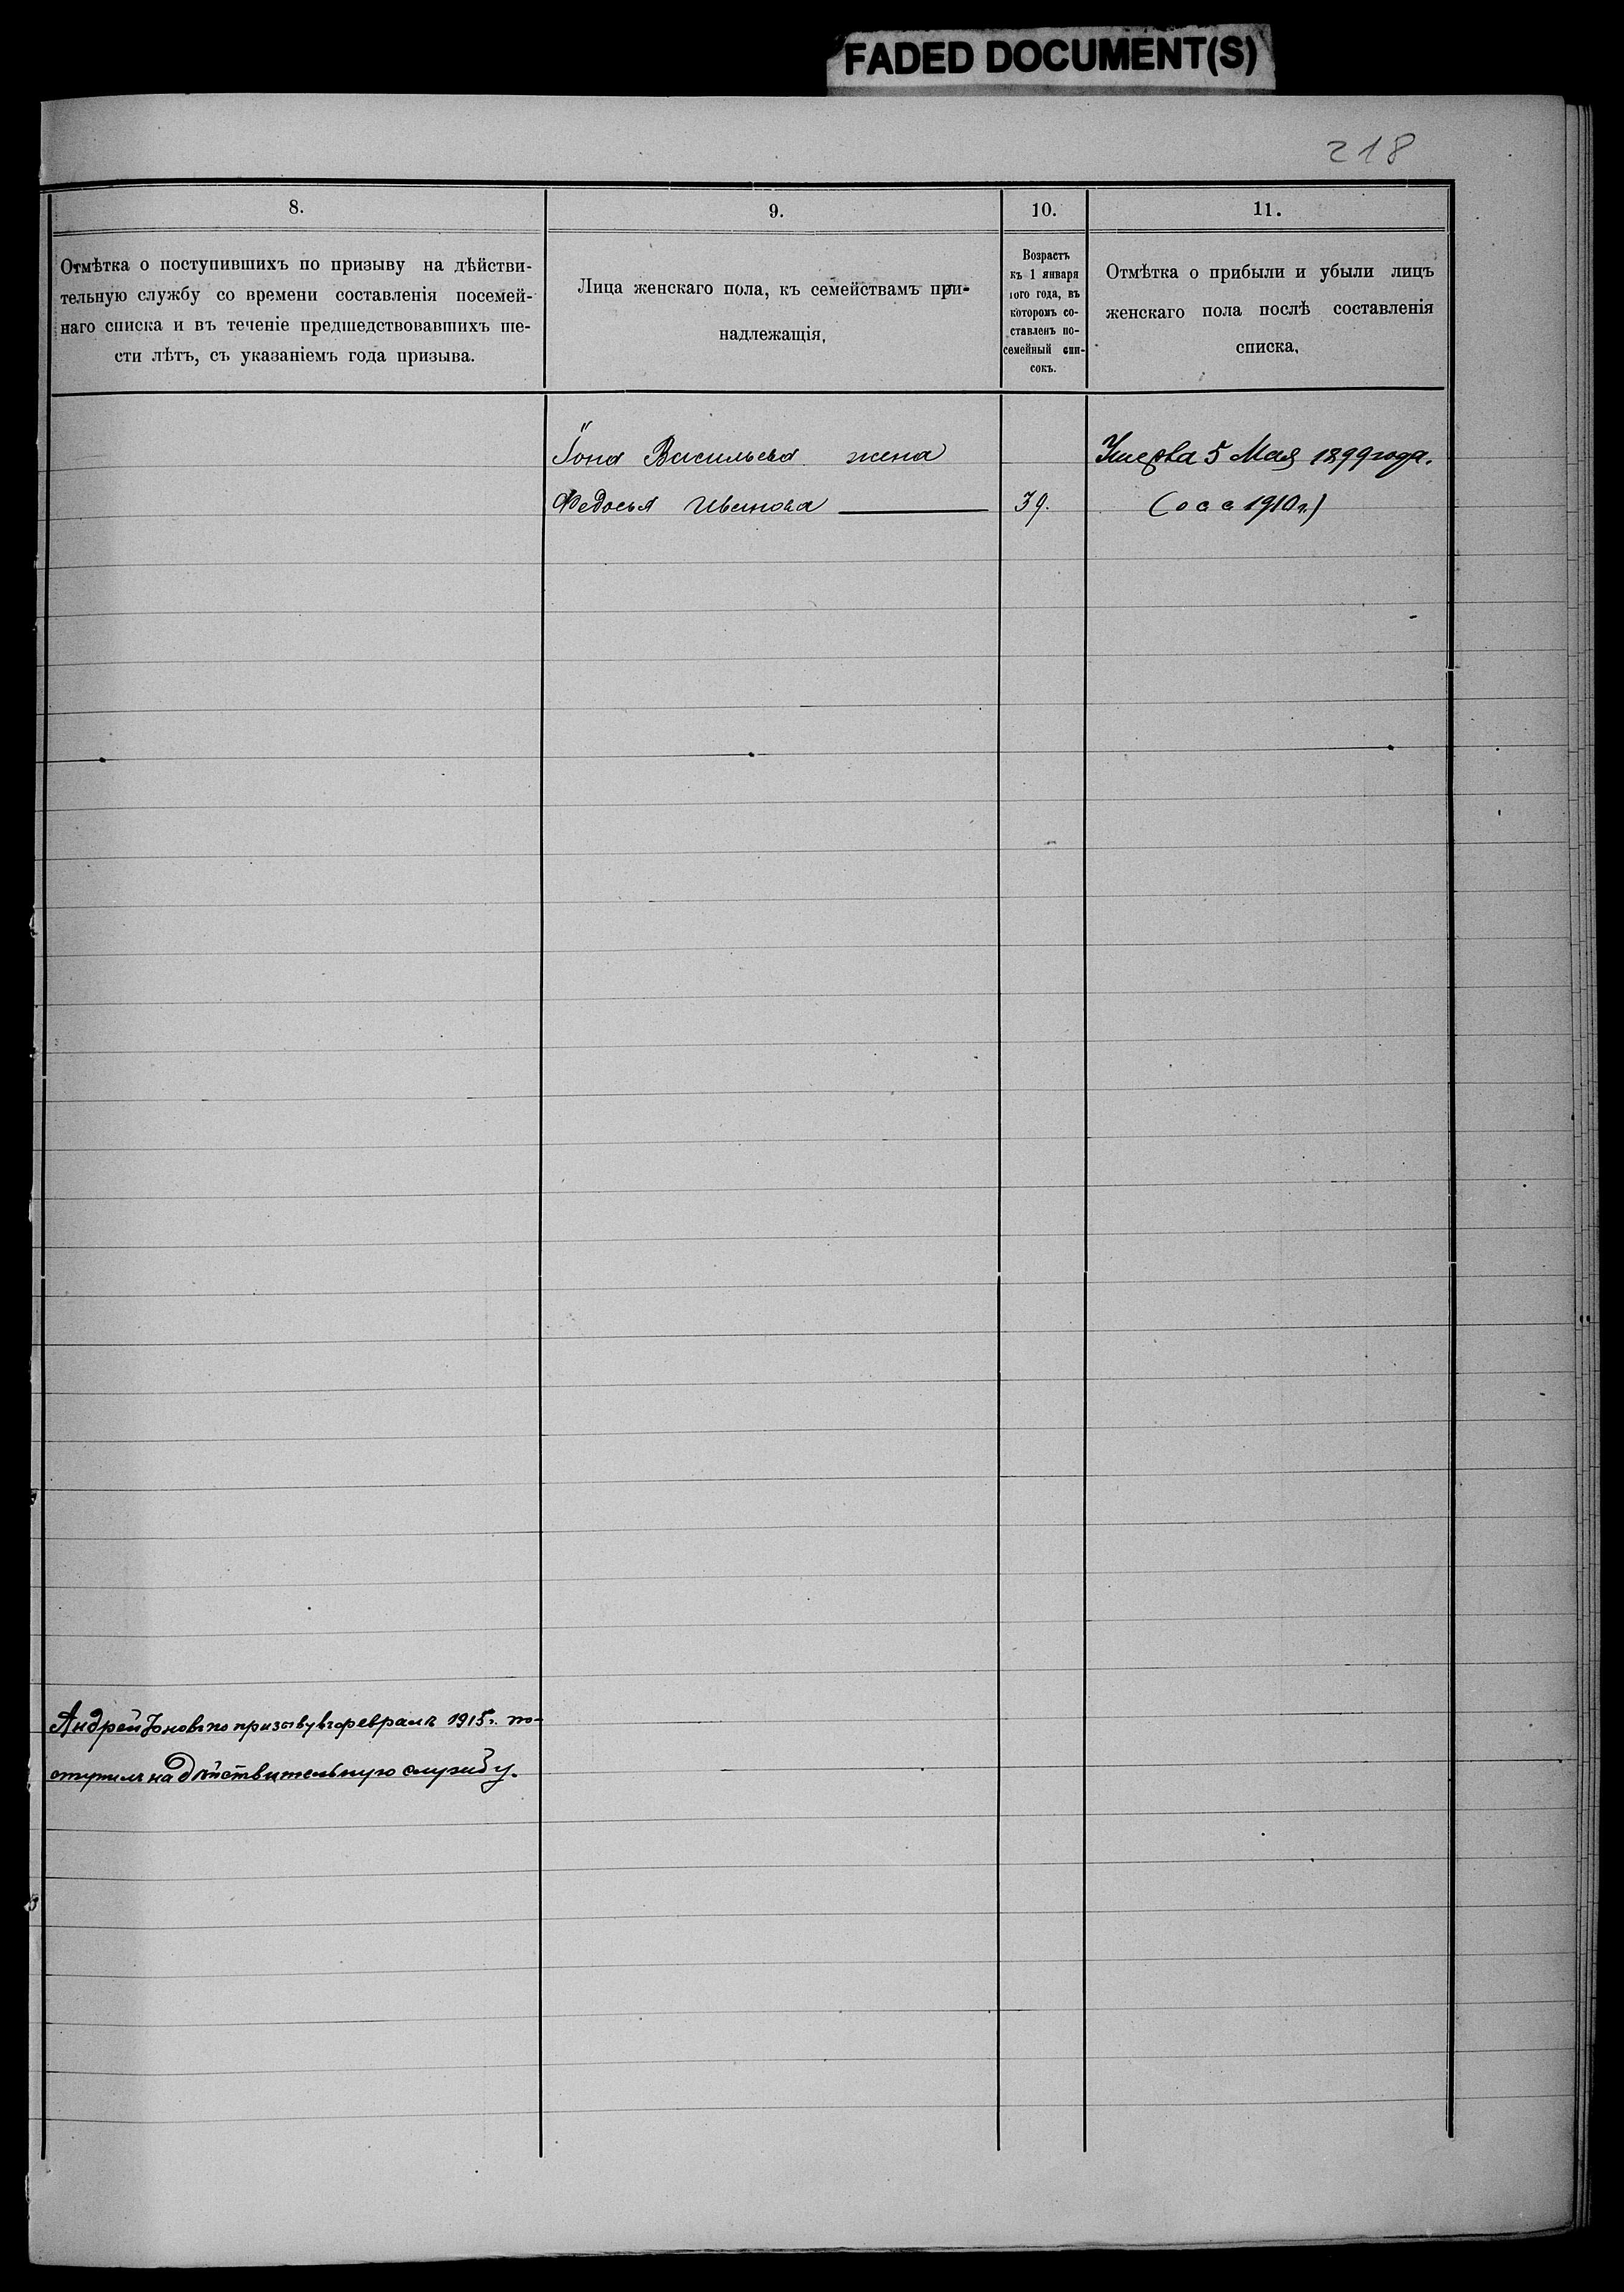 FADED DOCUMENT(S)
218
8.
9.
10.
11.
Отмѣтка о поступившихъ по призыву на дѣйстви-
тельную службу со времени составленія посемей-
наго списка и въ теченіе предшедствовавшихъ ше-
сти лѣтъ, съ указаніемъ года призыва.
Лица женскаго пола, къ семействамъ при-
надлежащія.
Возрастъ
къ 1 января
1ого года, въ
которомъ со-
ставленъ по-
семейный спи-
сокъ.
Отмѣтка о прибыли и убыли лицъ
женскаго пола послѣ составленія
списка.
Іона Васильева жена
Умерла 5 Мая 1899 года.
Федосья Иванова
39.
1910 г.)
Андрей Іоновъ по призыву въ февралѣ 1915 г. по-
ступилъ на дѣйствительную службу.